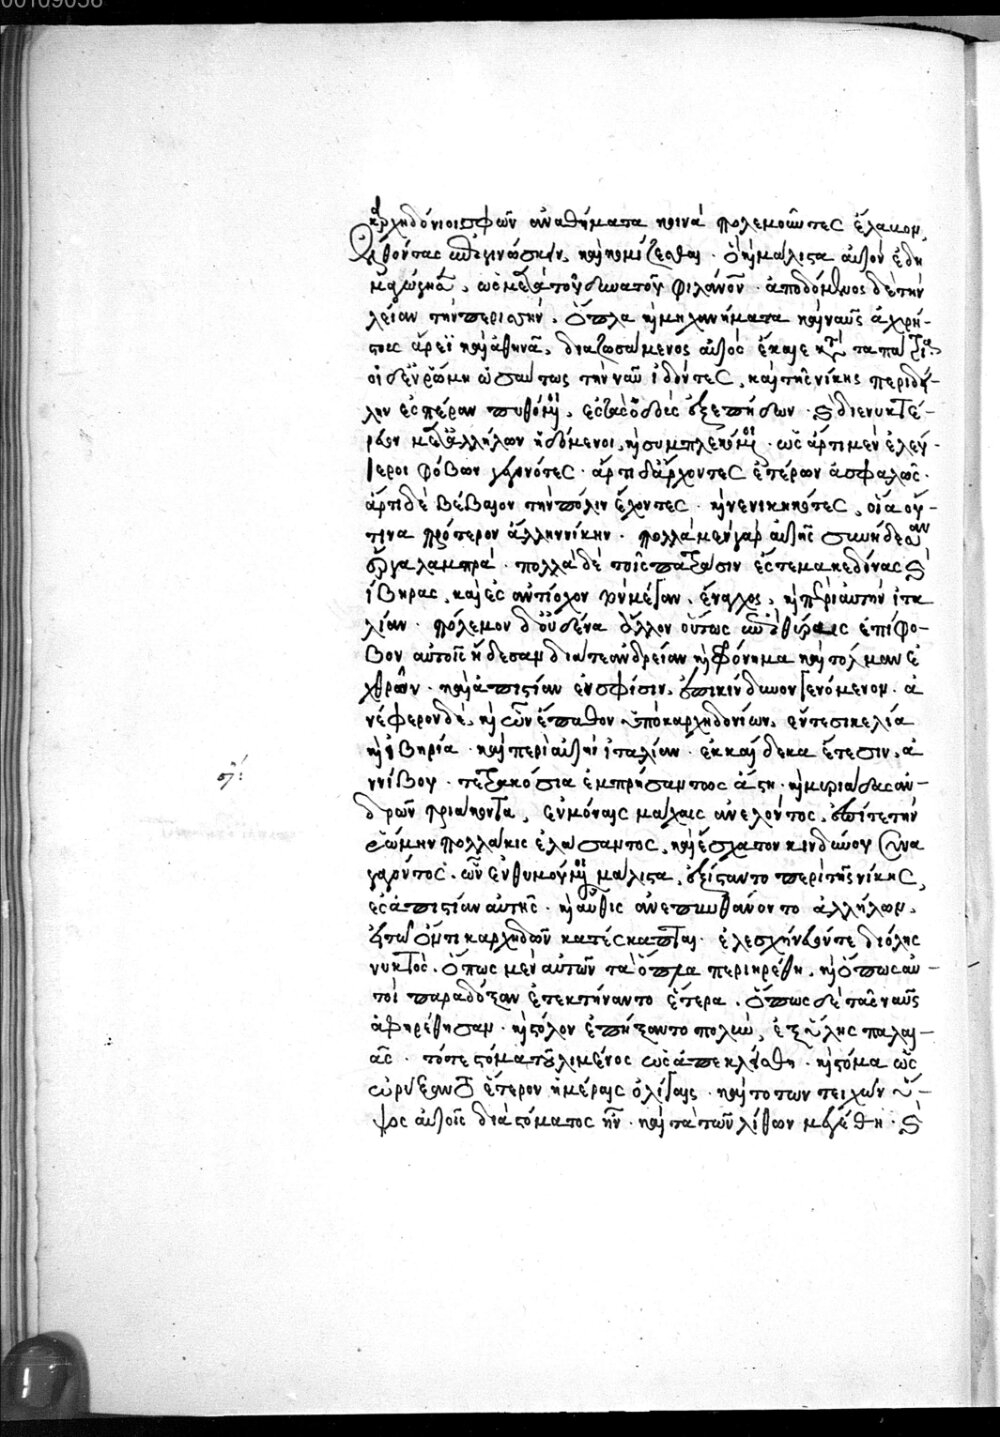 00109056
καρχηδόνιοι σφῶν ἀναθήματα κοινὰ πολεμοῦντες ἔλαβον,
ἐλθόντας ἐπιγινώσκειν, καὶ κομίζεσθαι. ὃ καὶ μάλιστα αὐτὸν ἐδη
μαγώγησεν, ὡς μετὰ τοῦ δυνατοῦ φιλάνθρωπον. ἀποδόμενος δὲ τὴν
λείαν τὴν περισσὴν, ὅπλα καὶ μηχανήματα καὶ ναῦς ἀχρή-
στους ἄρεϊ καὶ ἀθηνᾶ, διαζωσάμενος αὐτὸς ἔκαιε κατὰ τὰ πάτρια.
οἱ δ' ἐν ῥώμη ὡσαύτως τὴν ναῦν ἰδόντες, καὶ τῆς νίκης περὶ δεί-
λην ἑσπέραν πυθόμενοι, ἐς τὰς ὁδοὺς ἐξεπήδων. καὶ διενυκτέ-
ρευον μετ' ἀλλήλων ἡδόμενοι, καὶ συμπλεκόμενοι. ὡς ἄρτι μὲν ἐλεύ-
θεροι φόβων γεγονότες. ἄρτι δ' ἄρχοντες ἑτέρων ἀσφαλῶς.
ἄρτι δὲ βέβαιον τὴν πόλιν ἔχοντες. καὶ νενικηκότες, οἵαν οὔ-
τινα πρότερον ἄλλην νίκην. πολλὰ μὲν γὰρ αὐτοῖς συνήδεσαν
ἔργα λαμπρά. πολλὰ δὲ τοῖς πατράσιν ἔς τε μακεδόνας καὶ
ἴβηρας, καὶ ἐς ἀντίοχον τὸν μέγαν, ἔναγχος, καὶ περὶ αὐτὴν ἰτα
λίαν. πόλεμον δ' οὐδένα ἄλλον οὕτως ἐπὶ θύραις ἐπίφο-
βον αὐτοῖς ᾔδεσαν διά τε ἀνδρείαν καὶ φρόνημα καὶ τόλμαν ἐ
χθρῶν. καὶ ἀπιστίαν ἐν σφίσιν, ἐπικίνδυνον γενόμενον. ἀ
νέφερον δὲ, καὶ ὧν ἔπαθον ὑπὸ καρχηδονίων, ἔν τε σικελία
καὶ ἰβηρία. καὶ περὶ αὐτὴν ἰταλίαν. ἑκκαίδεκα ἔτεσιν, ἀ
ννίβου. τετρακόσια ἐμπρήσαντος ἄστη. καὶ μυριάδας ἀν-
δρῶν τριάκοντα, ἐν μόναις μάχαις ἀνελόντος, ἐπί τε τὴν
ῥώμην πολλάκις ἐλάσαντος, καὶ ἐς ἔσχατον κινδύνου συνα
γαγόντος. ὧν ἐνθυμούμενοι μάλιστα, ἐξίσταντο περὶ τῆς νίκης,
ἐς ἀπιστίαν αὐτῆς. καὶ αὖθις ἀνεπυνθάνοντο ἀλλήλων,
εἰ τῷ ὄντι καρχηδὼν κατέσκαπται. ἐλεσχήνευόν τε δι' ὅλης
νυκτὸς. ὅπως μὲν αὐτῶν τὰ ὅπλα περιηρέθη, καὶ ὅπως αὐ-
τοὶ παραδόξως ἐπεκτήναντο ἕτερα. ὅπως δὲ τὰς ναῦς
ἀφηρέθησαν. καὶ στόλον ἐπήξαντο πάλιν, ἐξ ὕλης παλαι-
ᾶς. τό τε στόμα τοῦ λιμένος ὡς ἀπεκλείσθη. καὶ στόμα ὡς
ὤρυξαν ἕτερον ἡμέραις ὀλίγαις. καὶ τὸ τῶν τειχῶν ὕ-
ψος αὐτοῖς διὰ στόματος ἦν. καὶ τὰ τῶν λίθων μεγέθη. καὶ